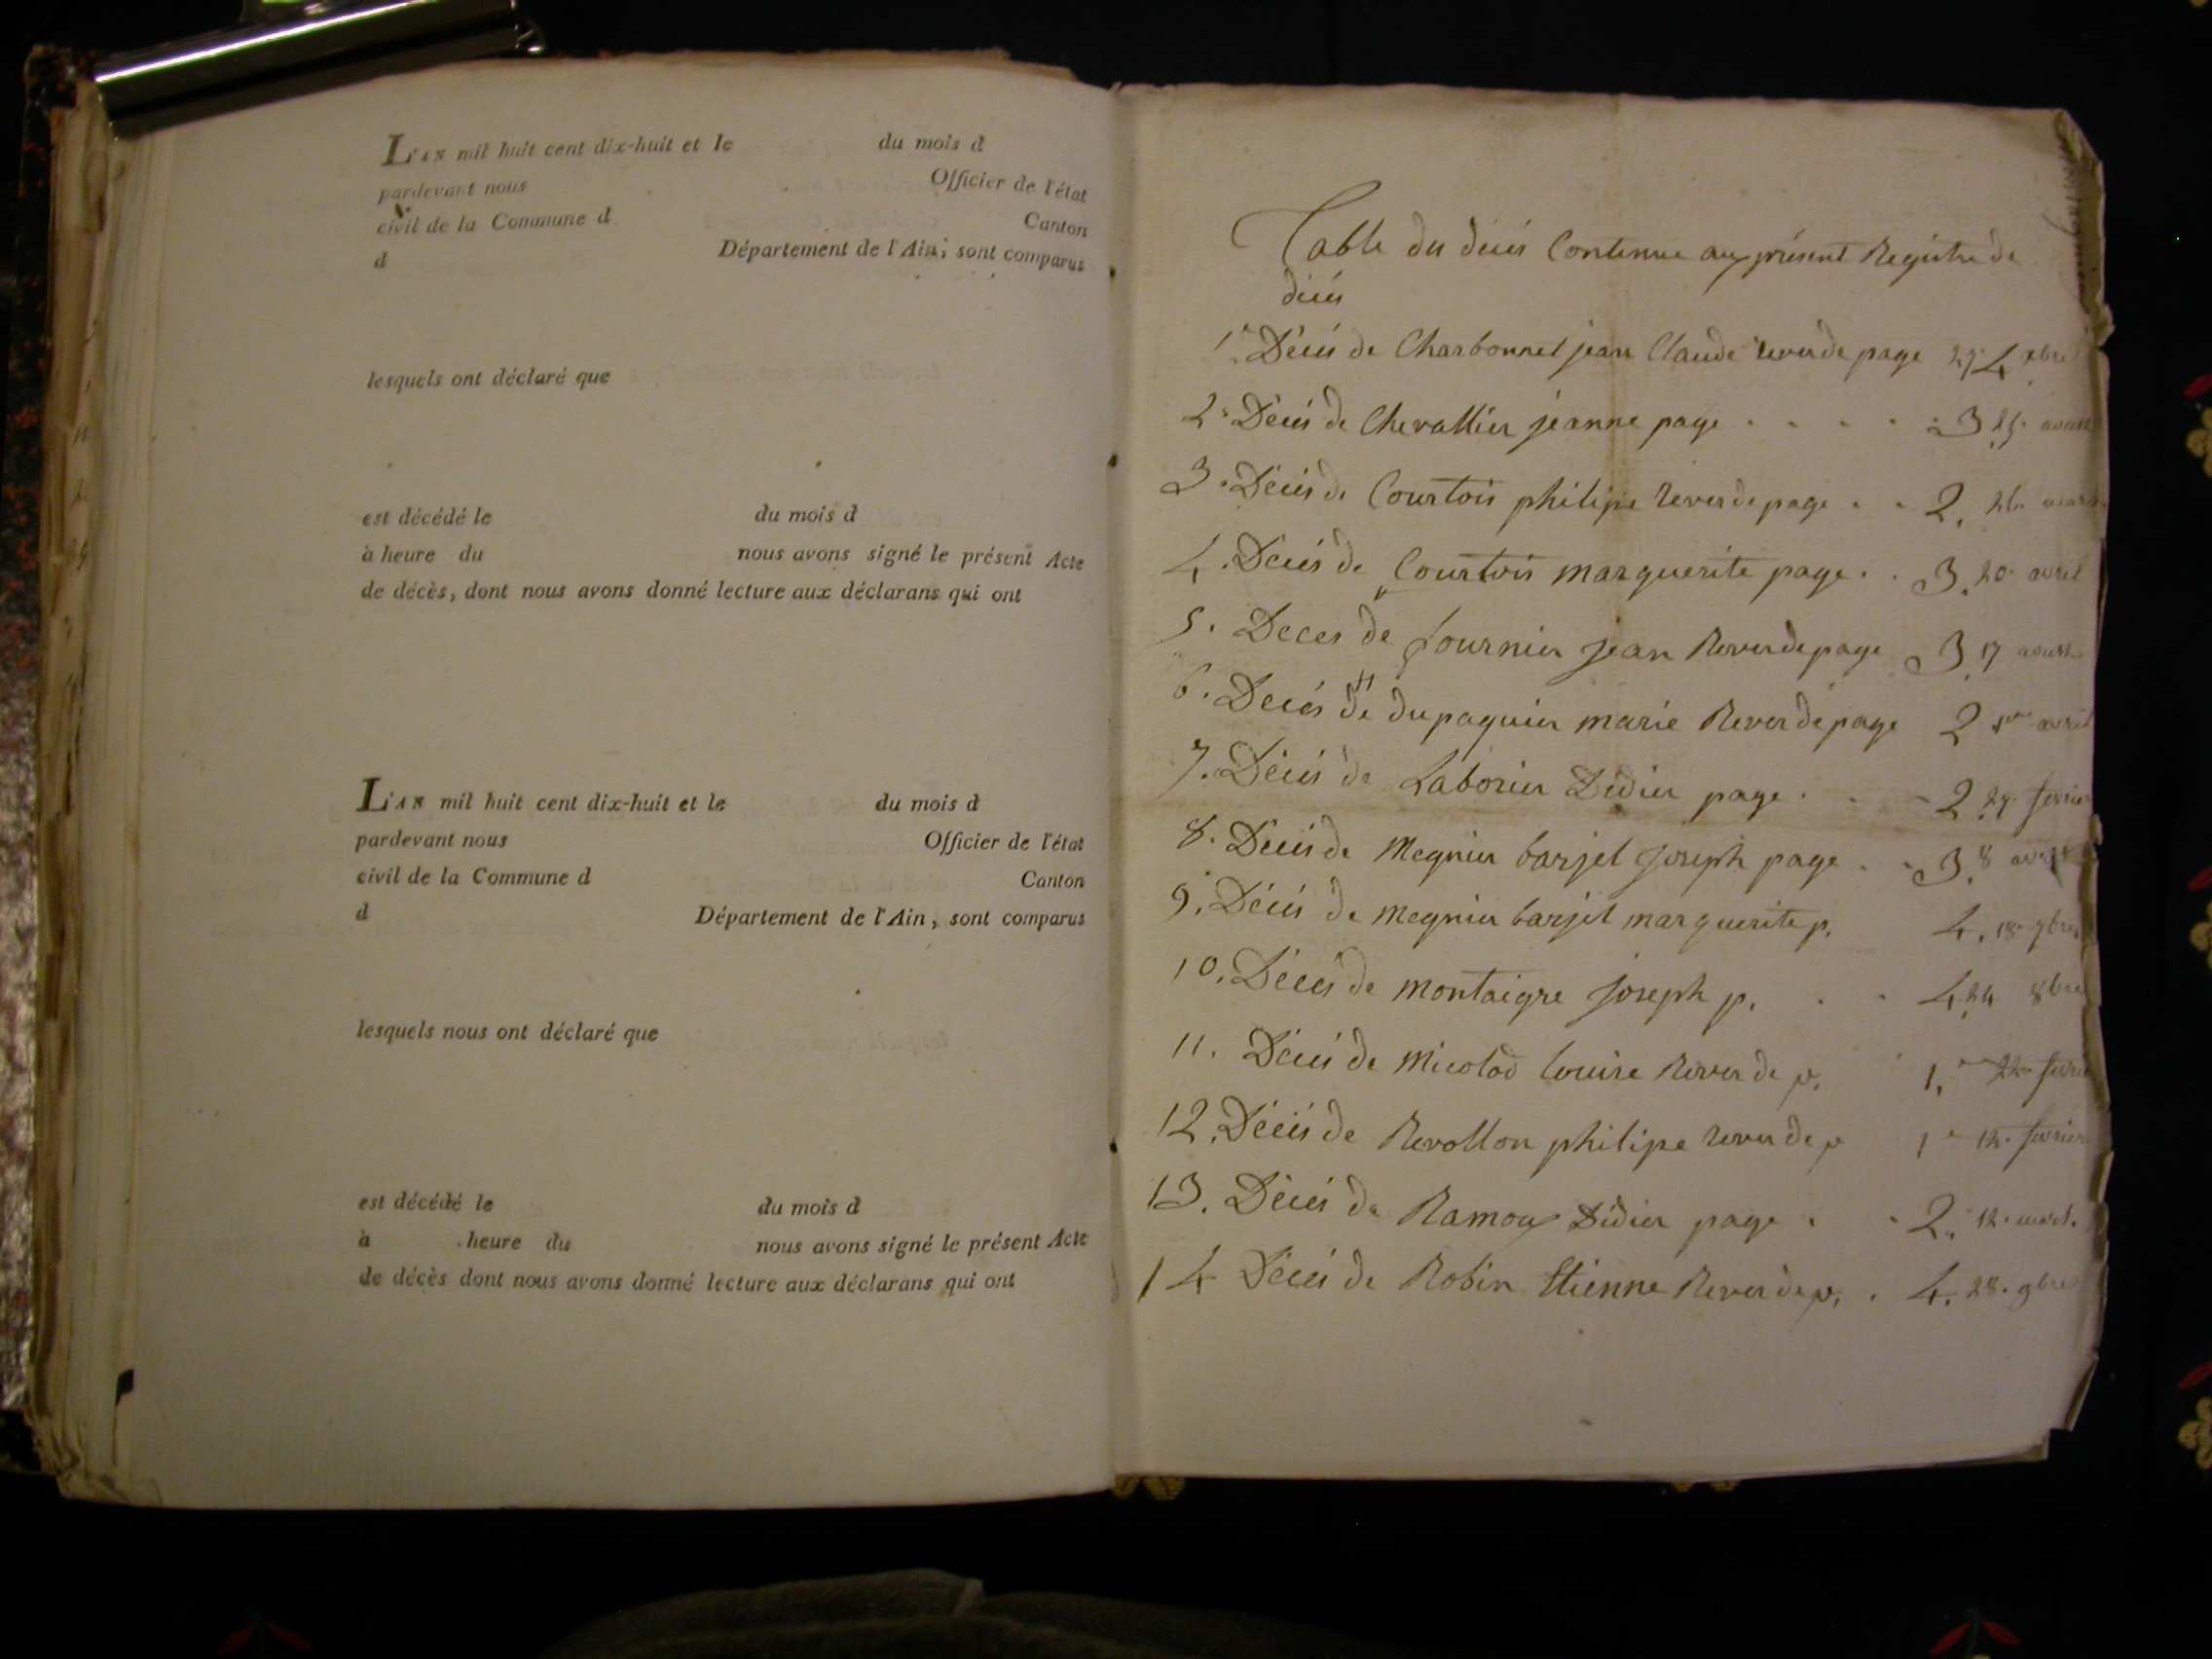 L'AN mil huit cent dix-huit et le du mois d
pardevant nous Officier de l'état
civil de la Commune d Canton
d Département de l'Ain, sont comparus
lesquels ont déclaré que
est décédé le du mois d
à heure du nous avons signé le présent Acte
de décès, dont nous avons donné lecture aux déclarans qui ont
L'AN mil huit cent dix-huit et le du mois d
pardevant nous Officier de l'état
civil de la Commune d Canton
d Département de l'Ain, sont comparus
lesquels nous ont déclaré que
est décédé le du mois d
à heure du nous avons signé le présent Acte
de décès dont nous avons donné lecture aux déclarans qui ont
Table des décés Contenue au présent Registre de
décés
1. Décés de Charbonnet jean Claude rever de page 4 xbre
2. Décés de Chevallier jeanne page 3 25. aoust
3. Décés de Courtois philipe rever de page 2. 26. mars
4. Décés de Courtois marguerite page 3. 20. avril
5. Deces de fournier jean Rever de page 3. 17 aoust
6. Decés de dupaquier marie Rever de page 2 avril
7. Décés de Laborier Didier page 2 février
8. Décés de Megnier barjet Joseph page 3. 8
9. Décés de megnier barjet marguerite p. 4. 18.
10. Décés de montaigre Joseph p. 4. 24 8bre
11. Décés de Micolod louise Rever de p. 1. fevrier
12. Décés de Revollon philipe rever de p 1 12. fevrier
13. Décés de Ramoux Didier page 2. 12. mars
14 Décés de Robin Etienne Rever de p. 4. 28. 9bre